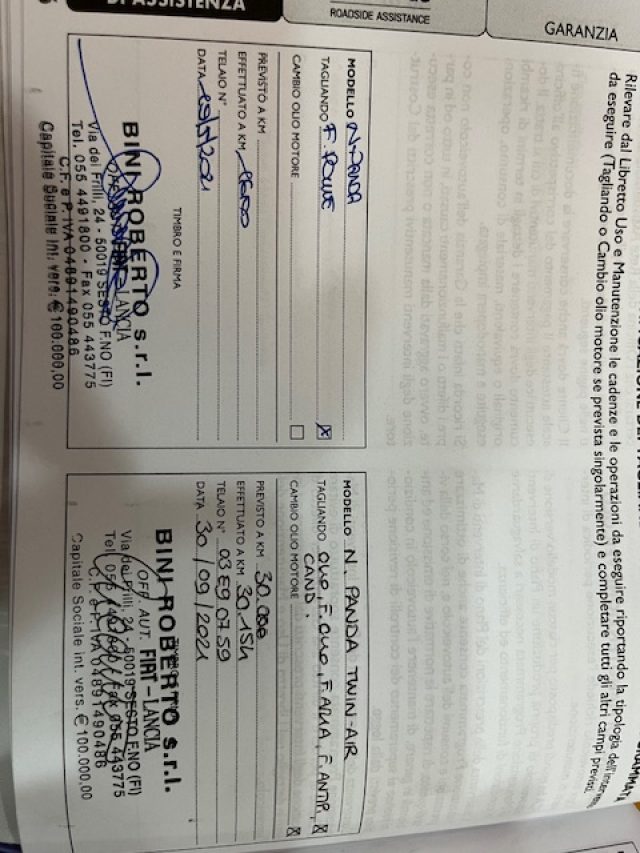 DI ASSISTENZA
ROADSIDE ASSISTANCE
GARANZIA
GRAMMATA
Rilevare dal Libretto Uso e Manutenzione le cadenze e le operazioni da eseguire riportando la tipologia dell'intervento
da eseguire (Tagliando o Cambio olio motore se prevista singolarmente) e completare tutti gli altri campi previsti.
MODELLO N. PANDA
TAGLIANDO
CAMBIO OLIO MOTORE
PREVISTO A KM
EFFETTUATO A KM
TELAIO N°
DATA
TIMBRO E FIRMA
BINI ROBERTO s.r.l.
FIAT-LANCIA
Via dei Frilli, 24 - 50019 SESTO F.NO (FI)
Tel. 055 4491800 - Fax 055 443775
C.F. e P. IVA 04891490486
Capitale Sociale int. vers. € 100.000,00
MODELLO N. PANDA TWIN-AIR
TAGLIANDO OLIO, F.OLIO, F.ARIA, F.ANTIP,
CAND.
CAMBIO OLIO MOTORE
PREVISTO A KM 30.000
EFFETTUATO A KM 30.154
TELAIO N° 03E90759
DATA 30/09/2021
BINI ROBERTO s.r.l.
OFF. AUT. FIAT-LANCIA
Via dei Frilli, 24 - 50019 SESTO F.NO (FI)
Tel. 055 4491800 - Fax 055 443775
C.F. e P. IVA 04891490486
Capitale Sociale int. vers. € 100.000,00